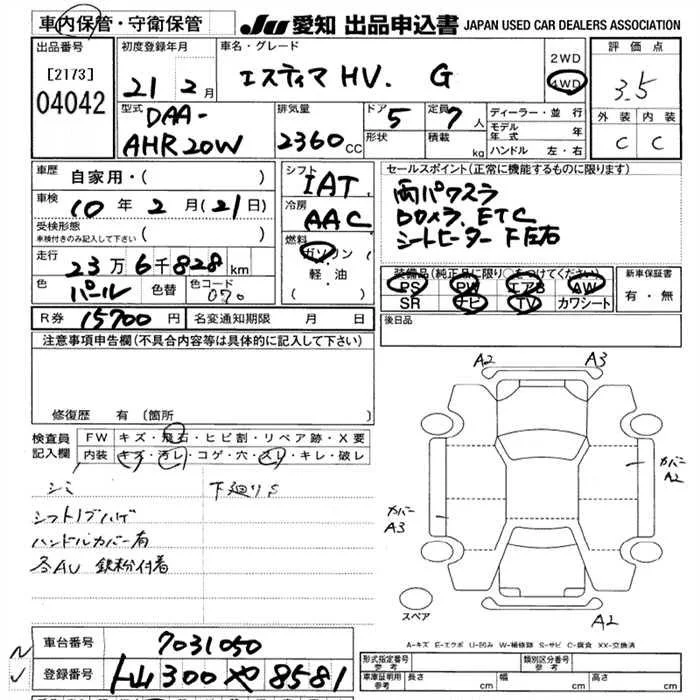 車内保管・守衛保管 JU 愛知 出品申込書 JAPAN USED CAR DEALERS ASSOCIATION
出品番号 [2173] 04042
初度登録年月 21 2月
車名・グレード エスティマ HV. G
2WD 4WD
評価点 3.5
外装 内装
C C
型式 DAA-AHR20W
排気量 2360 CC
ドア 5 定員 7人
形状 積載 kg
ディーラー・並行
モデル年式 年
ハンドル 左・右
車歴 自家用・( )
車検 10年 2月(21日)
受検形態 車検付きのみ記入して下さい ( )
走行 23万6千828km
色 パール 色替 色コード 070
シフト IAT
冷房 AAC
燃料 ガソリン・軽・油 ( )
セールスポイント(正常に機能するものに限ります)
両パワスラ
Dカメラ、ETC
シートヒーター 下左右
装備品(純正品に限り○をつけてください)
PS PW エアB AW
SR ナビ TV カワシート
新車保証書 有・無
R券 15700円 名変通知期限 月 日
後日品
注意事項申告欄(不具合内容等は具体的に記入して下さい)
修復歴 有(箇所
検査員記入欄
FW キズ・飛石・ヒビ割・リペア跡・X要
内装 キズ・汚レ・コゲ・穴・スレ・キレ・破レ
シミ 下廻りS
シフトノブハゲ
ハンドルカバー有
各AU 鉄粉付着
A2 A3
カバー A2
カバー A3
スペア
A2
A-キズ E-エクボ U-凹み W-補修跡 S-サビ C-腐食 XX-交換済
車台番号 7031050
登録番号 300 や 8581
形式指定番号 参考
類別区分番号 参考
車庫証明用参考 長さ cm 幅 cm 高さ cm